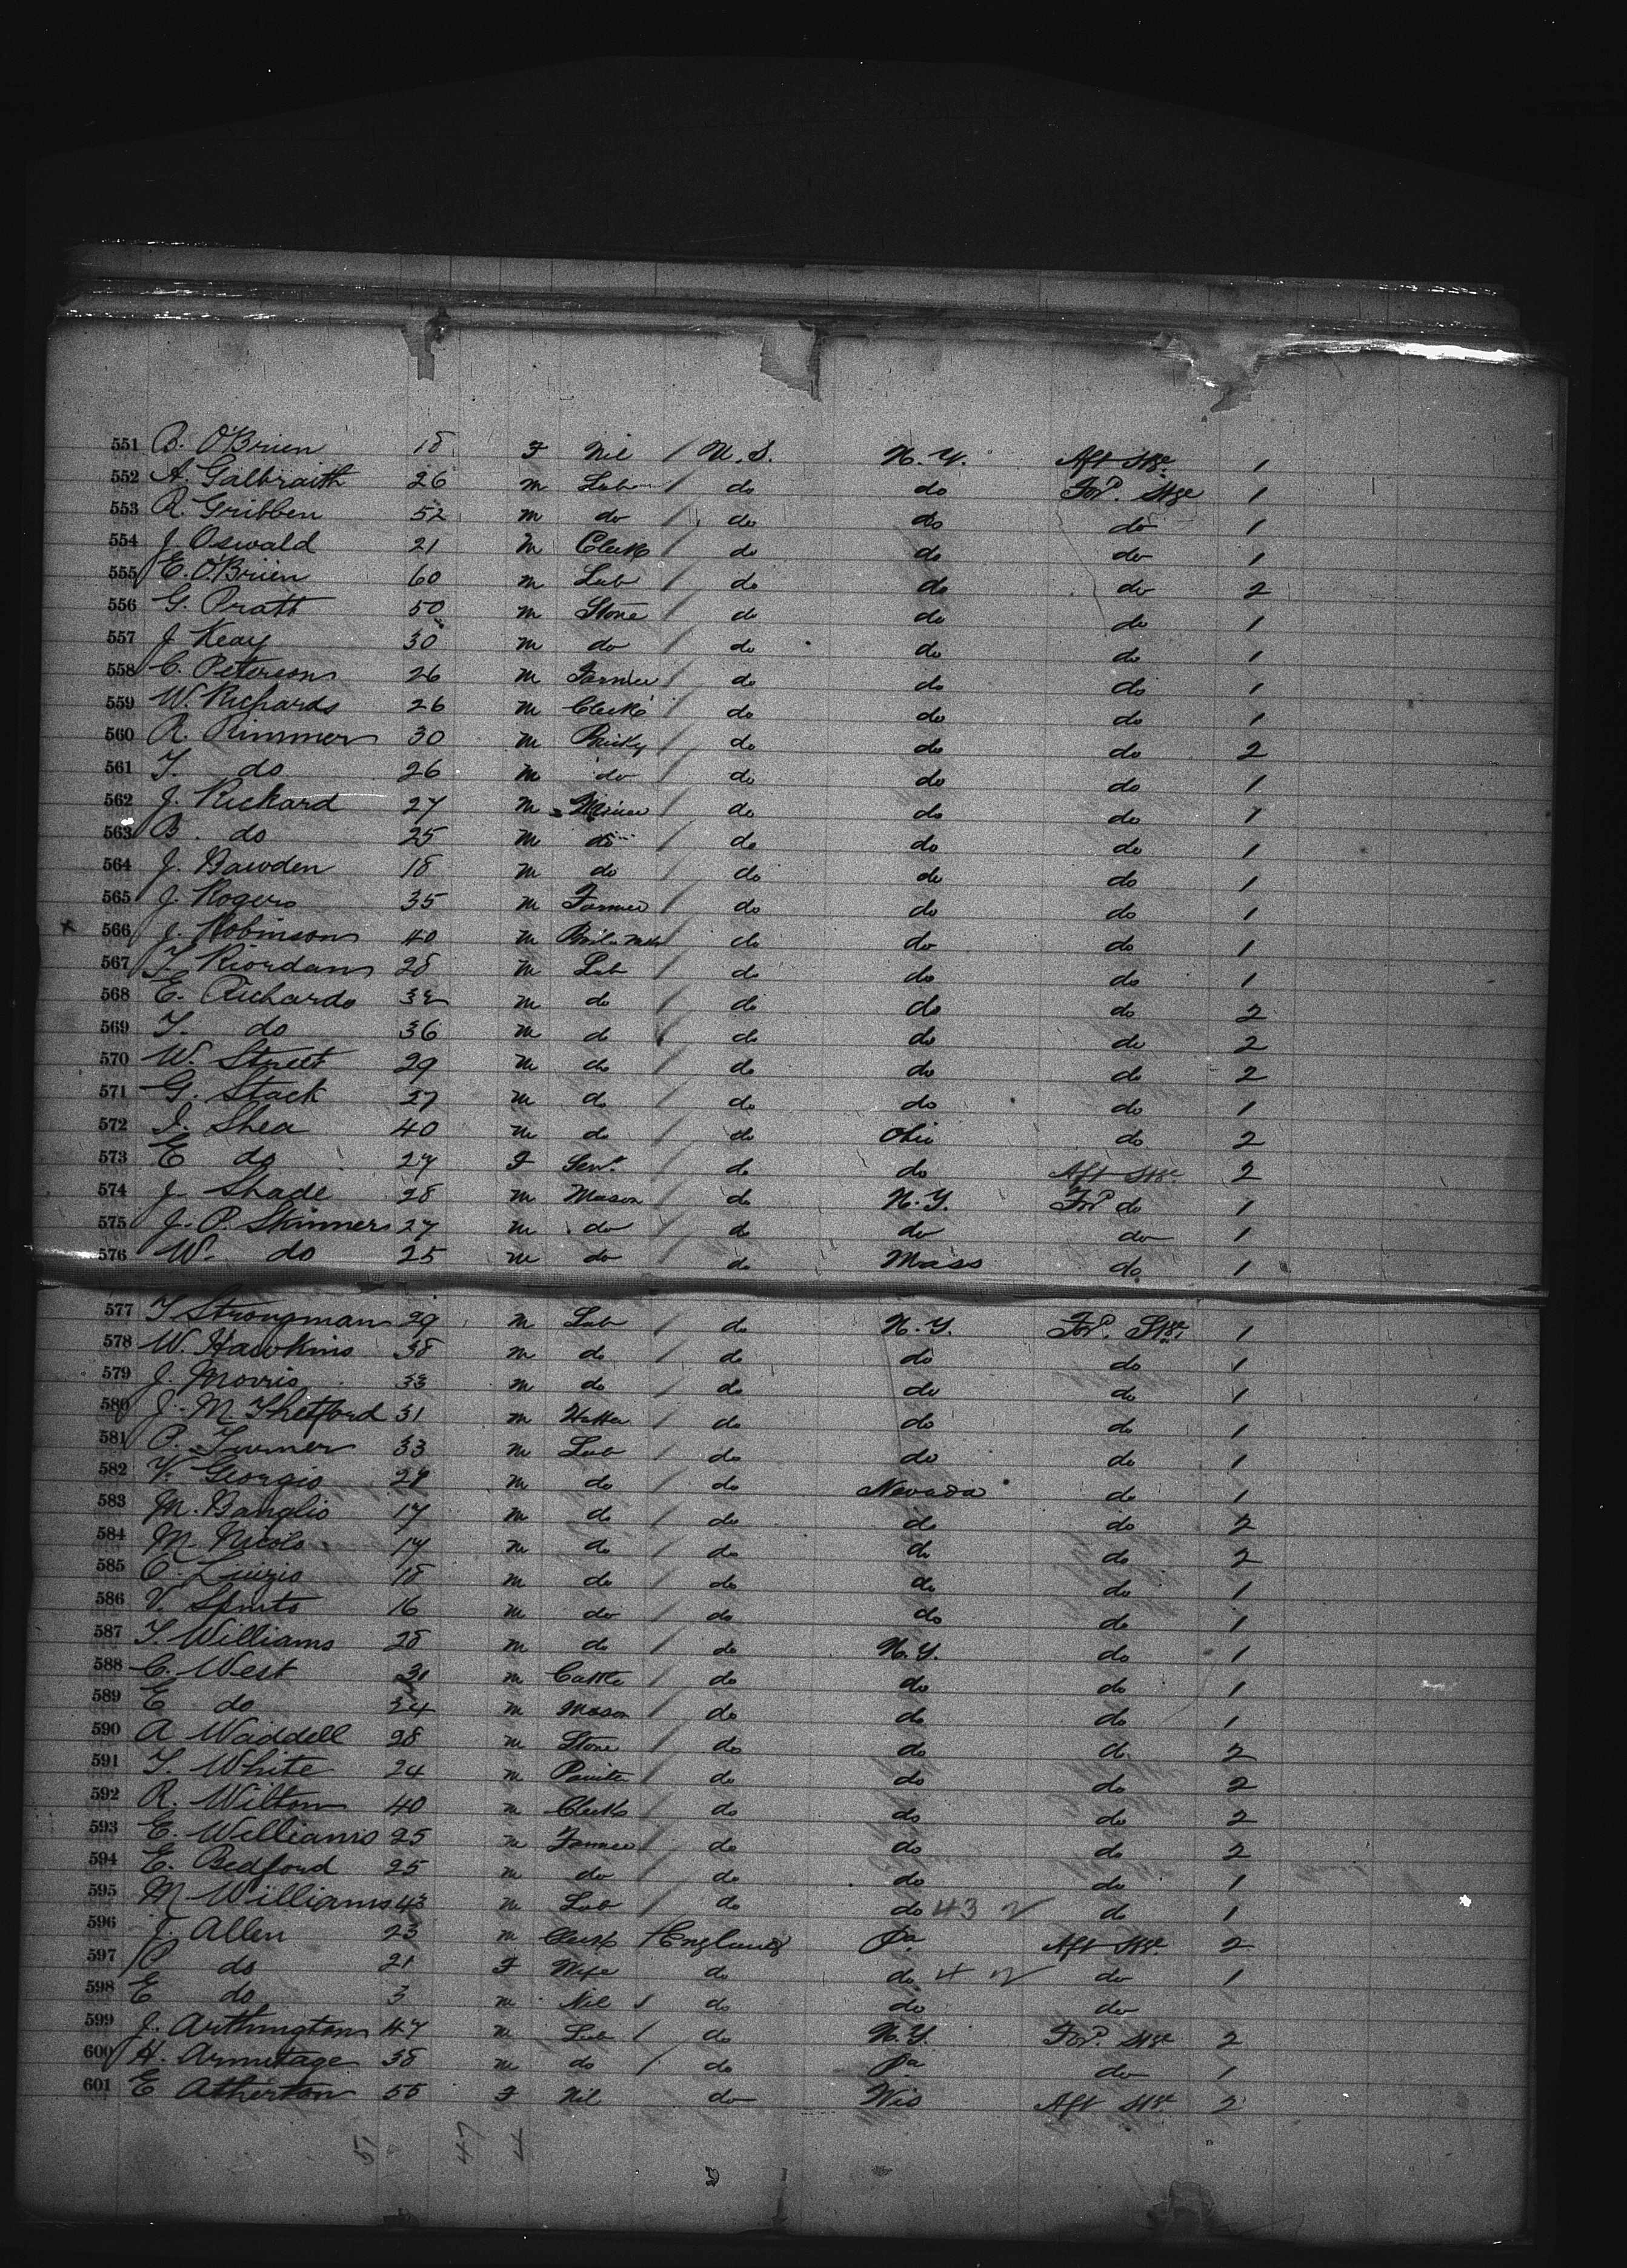 551 B. O'Brien 18 F Nil / U.S. N.Y. Aft Stge 1
552 A. Galbraith 26 m Lab / do do For'd. Stge 1
553 R. Gribben 52 m do / do do do 1
554 J. Oswald 21 m Clerk / do do do 1
555 E. O'Brien 60 m Lab / do do do 2
556 G. Pratt 50 m Stone / do do do 1
557 J. Keay 30 m do / do do do 1
558 C. Peterson 26 m Farmer / do do do 1
559 W. Richards 26 m Clerk / do do do 1
560 R. Rimmer 30 m Bricky / do do do 2
561 T. do 26 m do / do do do 1
562 J. Rickard 27 m Miner / do do do 1
563 B. do 25 m do / do do do 1
564 J. Bawden 18 m do / do do do 1
565 J. Rogers 35 m Farmer / do do do 1
x 566 J. Robinson 40 m / do do do 1
567 T. Riordan 28 m Lab / do do do 1
568 E. Richards 32 m do / do do do 2
569 T. do 36 m do / do do do 2
570 W. Street 29 m do / do do do 2
571 G. Stack 27 m do / do do do 1
572 J. Shea 40 m do / do Ohio do 2
573 E do 27 F Serv. / do do Aft Stge 2
574 J. Shade 28 m Mason / do N.Y. For'd do 1
575 J. P. Skinner 27 m do / do do do 1
576 W. do 25 m do do Mass do 1
577 T Strongman 29 m Lab / do N.Y. For'd. Stge 1
578 W. Hawkins 38 m do / do do do 1
579 J. Morris 33 m do / do do do 1
580 J. M Thetford 31 m Hatter / do do do 1
581 P. Turner 33 m Lab / do do do 1
582 V. Georgio 29 m do / do Nevada do 1
583 M. Banglio 17 m do / do do do 2
584 M. Nicolo 17 m do / do do do 2
585 O. Luigio 18 m do / do do do 1
586 V. Spirito 16 m do / do do do 1
587 T. Williams 28 m do / do N.Y. do 1
588 C. West 31 m Cattle / do do do 1
589 E do 24 m Mason / do do do 1
590 A Waddell 28 m Stone / do do do 2
591 T. White 24 m Painter / do do do 2
592 R. Wilton 40 m Clerk / do do do 2
593 E. Williams 25 m Farmer / do do do 2
594 E. Bedford 25 m do / do do do 1
595 M Williams 43 m Lab / do do 43 do 1
596 J. Allen 23 m Clerk / England Pa Aft Stge 2
597 P do 21 F Wife do do 4 do 1
598 E do 3 m Nil / do do do
599 J. Arthington 47 m Lab / do N.Y. For'd. Stge 2
600 H. Armitage 38 m do / do Pa do 1
601 E Atherton 55 F Nil do Wis Aft Stge 2
51 47 4